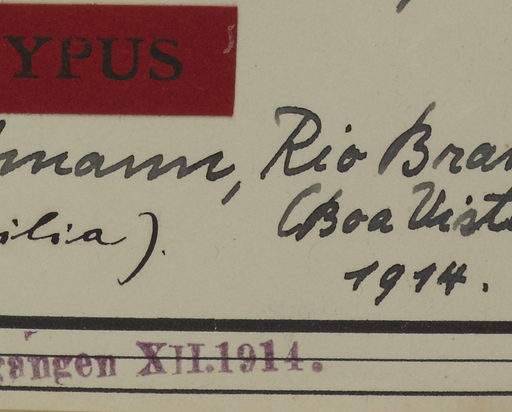 YPUS
mann, Rio Bran
ilia). (Boa Vista
1914.
gangen XII.1914.